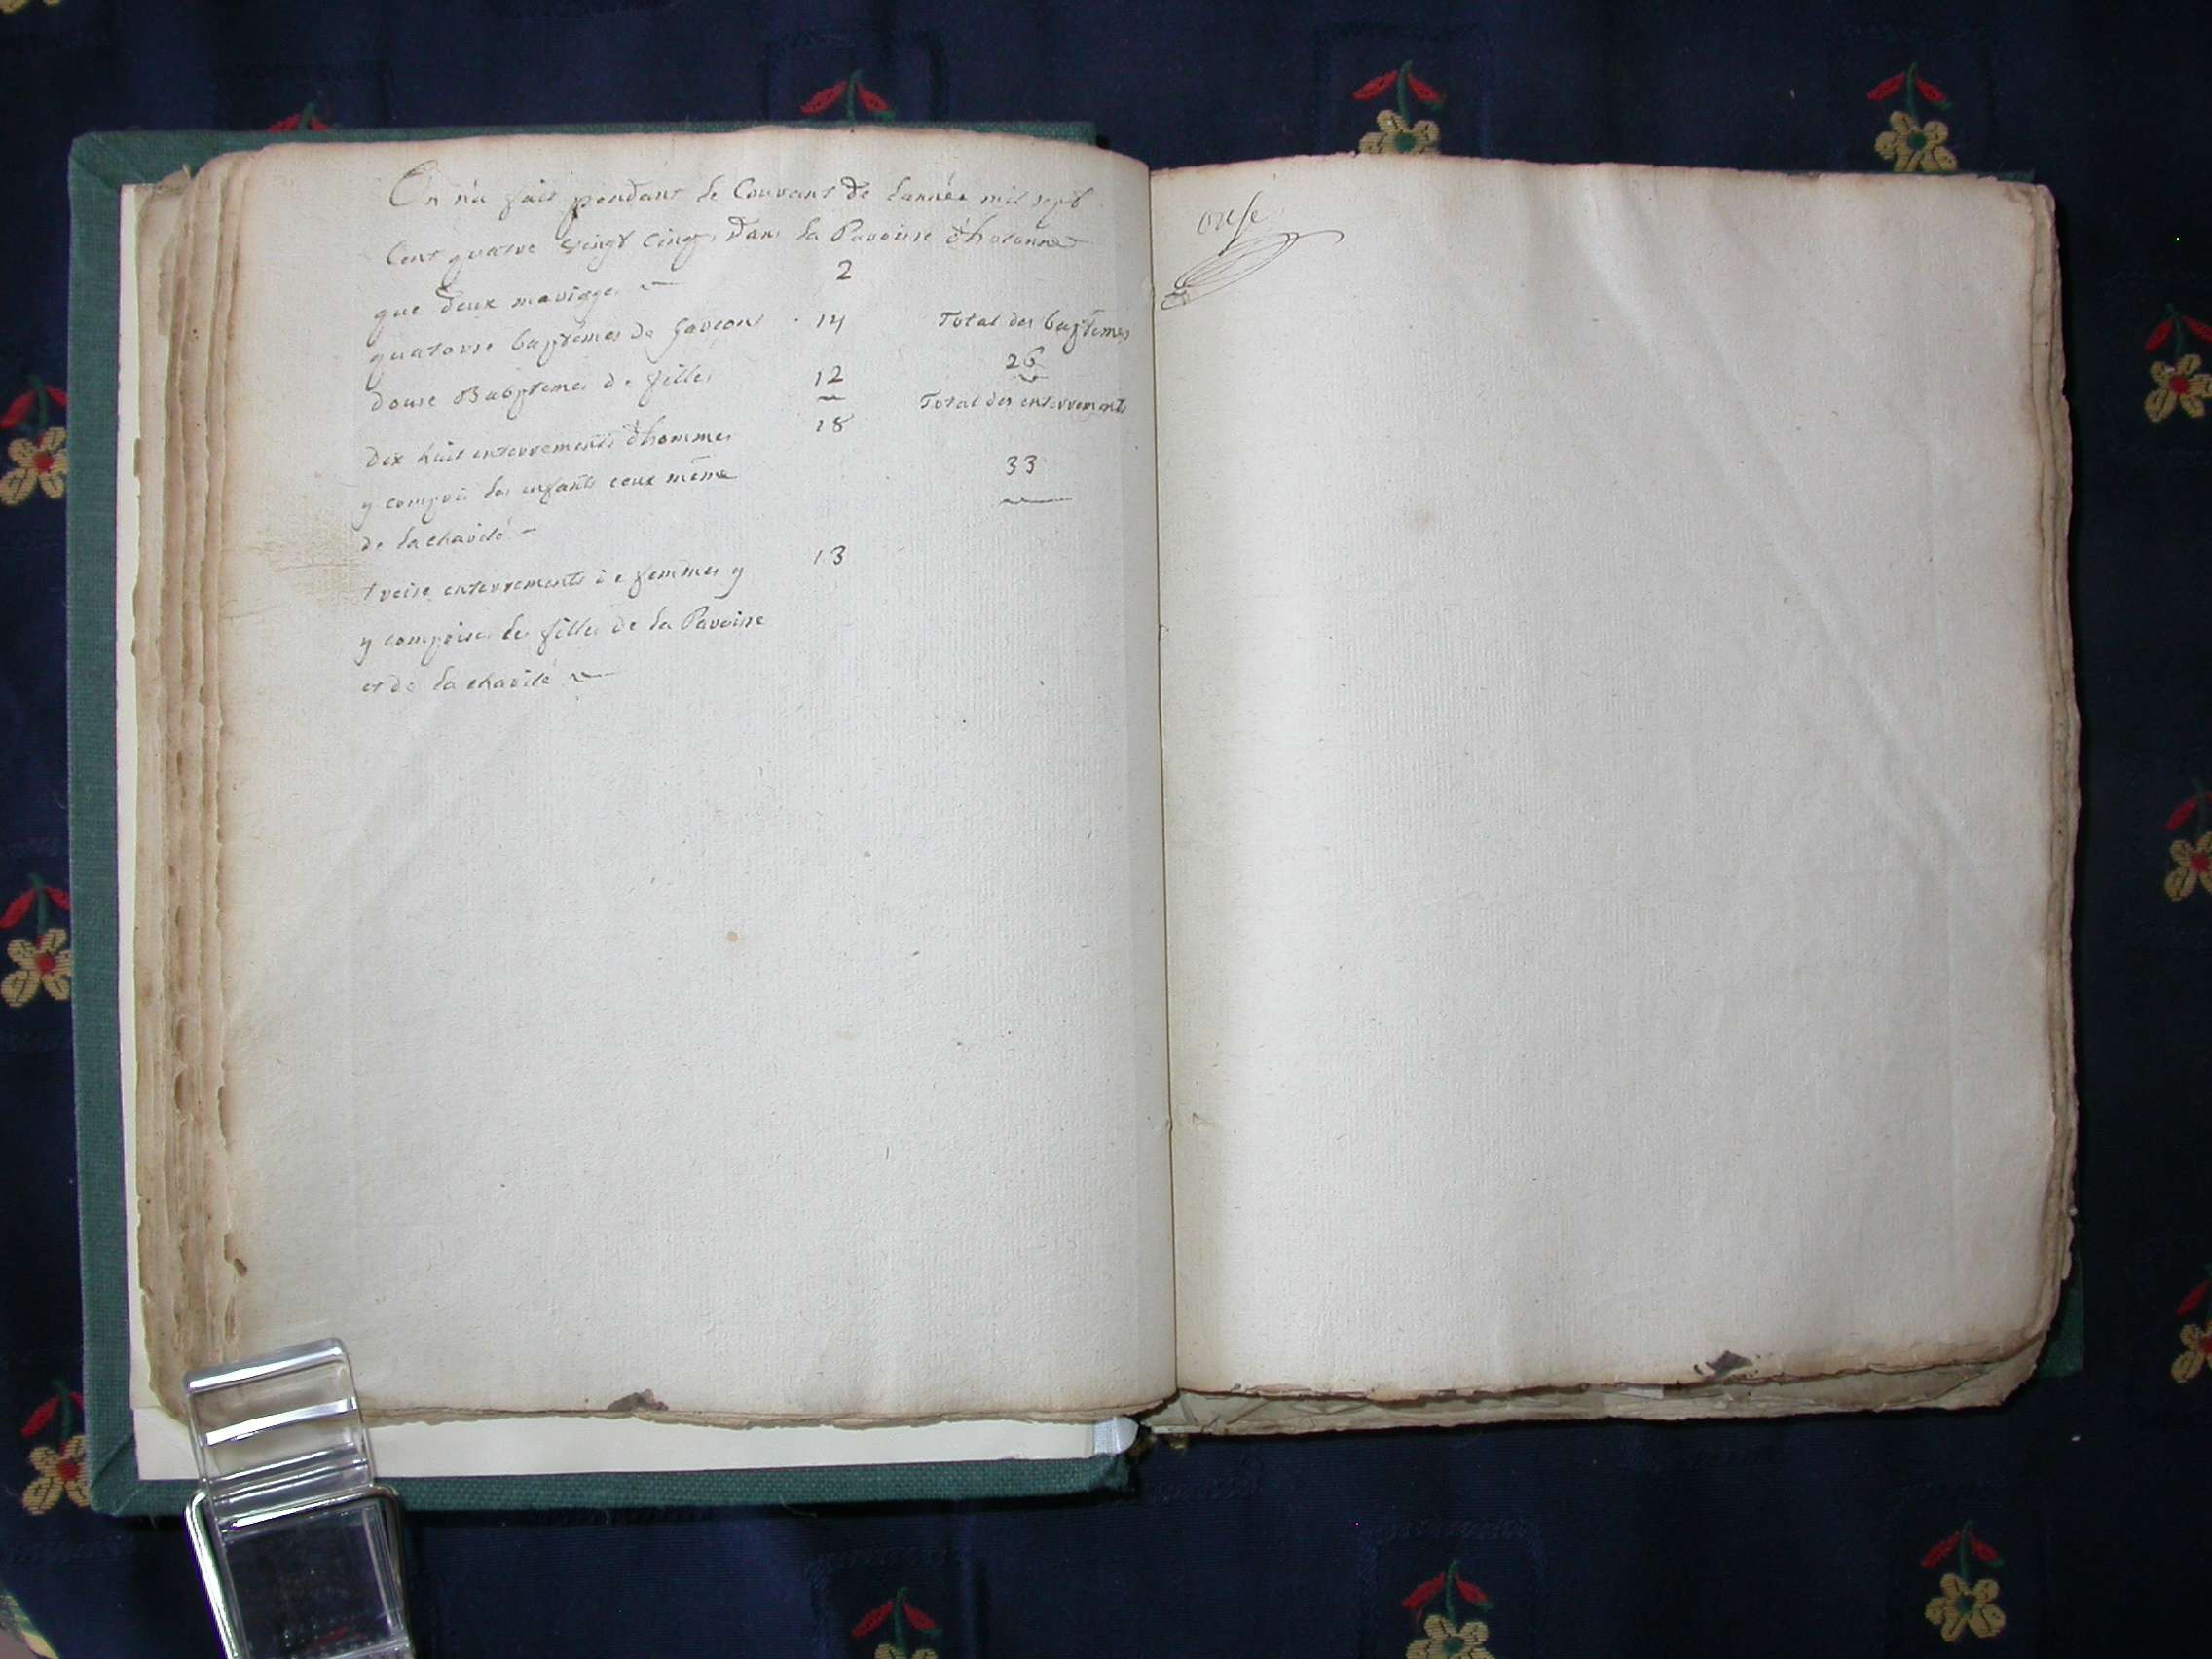 On n'a fait pendant le Courant de l'année mil sept
Cent quatre vingt cinq, dans la Paroisse d'hotonne
que deux mariages 2
quatorse baptêmes de garçons 14 Total des baptemes
26
douse Babptemes de filles 12
Total des enterrements
dix huit enterrements d'hommes 18
y compris les enfants ceux même 33
de la charité
treise enterrements de femmes y 13
y comprises les filles de la Paroisse
et de la charité
onse